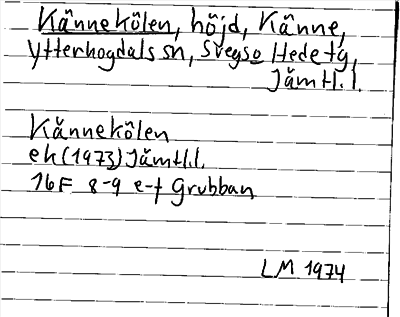 Kännekölen, höjd, Känne,
Ytterhogdals sn, Svegs o Hede tg,
Jämtl.l.
Kännekölen
ek (1973) Jämtl.l.
16F 8-9 e-f Grubban
LM 1974